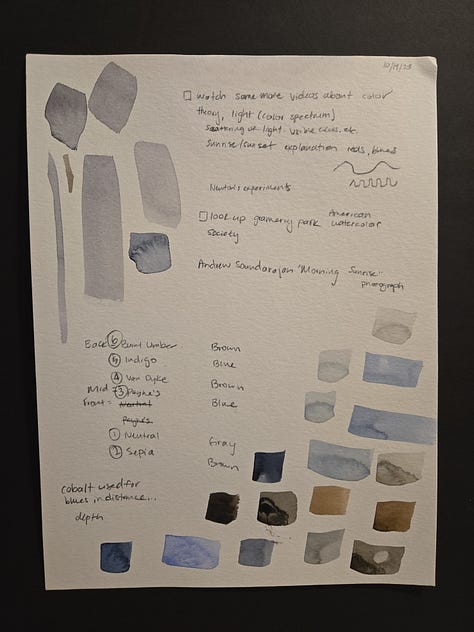 10/19/23
watch some more videos about color
theory, light (color spectrum)
scattering of light visible
Sunrise/sunset explanation reds, blues
Newton's experiments
look up gramercy park American
watercolor
society
Andrew Soundarajan "Morning Sunrise"
photograph
Back 6 Burnt Umber Brown
5 Indigo Blue
4 Van Dyke Brown
Mid 3 Payne's Blue
Front = Neutral
Payne's
1 Neutral Gray
2 Sepia Brown
cobalt used for
blues in distance...
depth